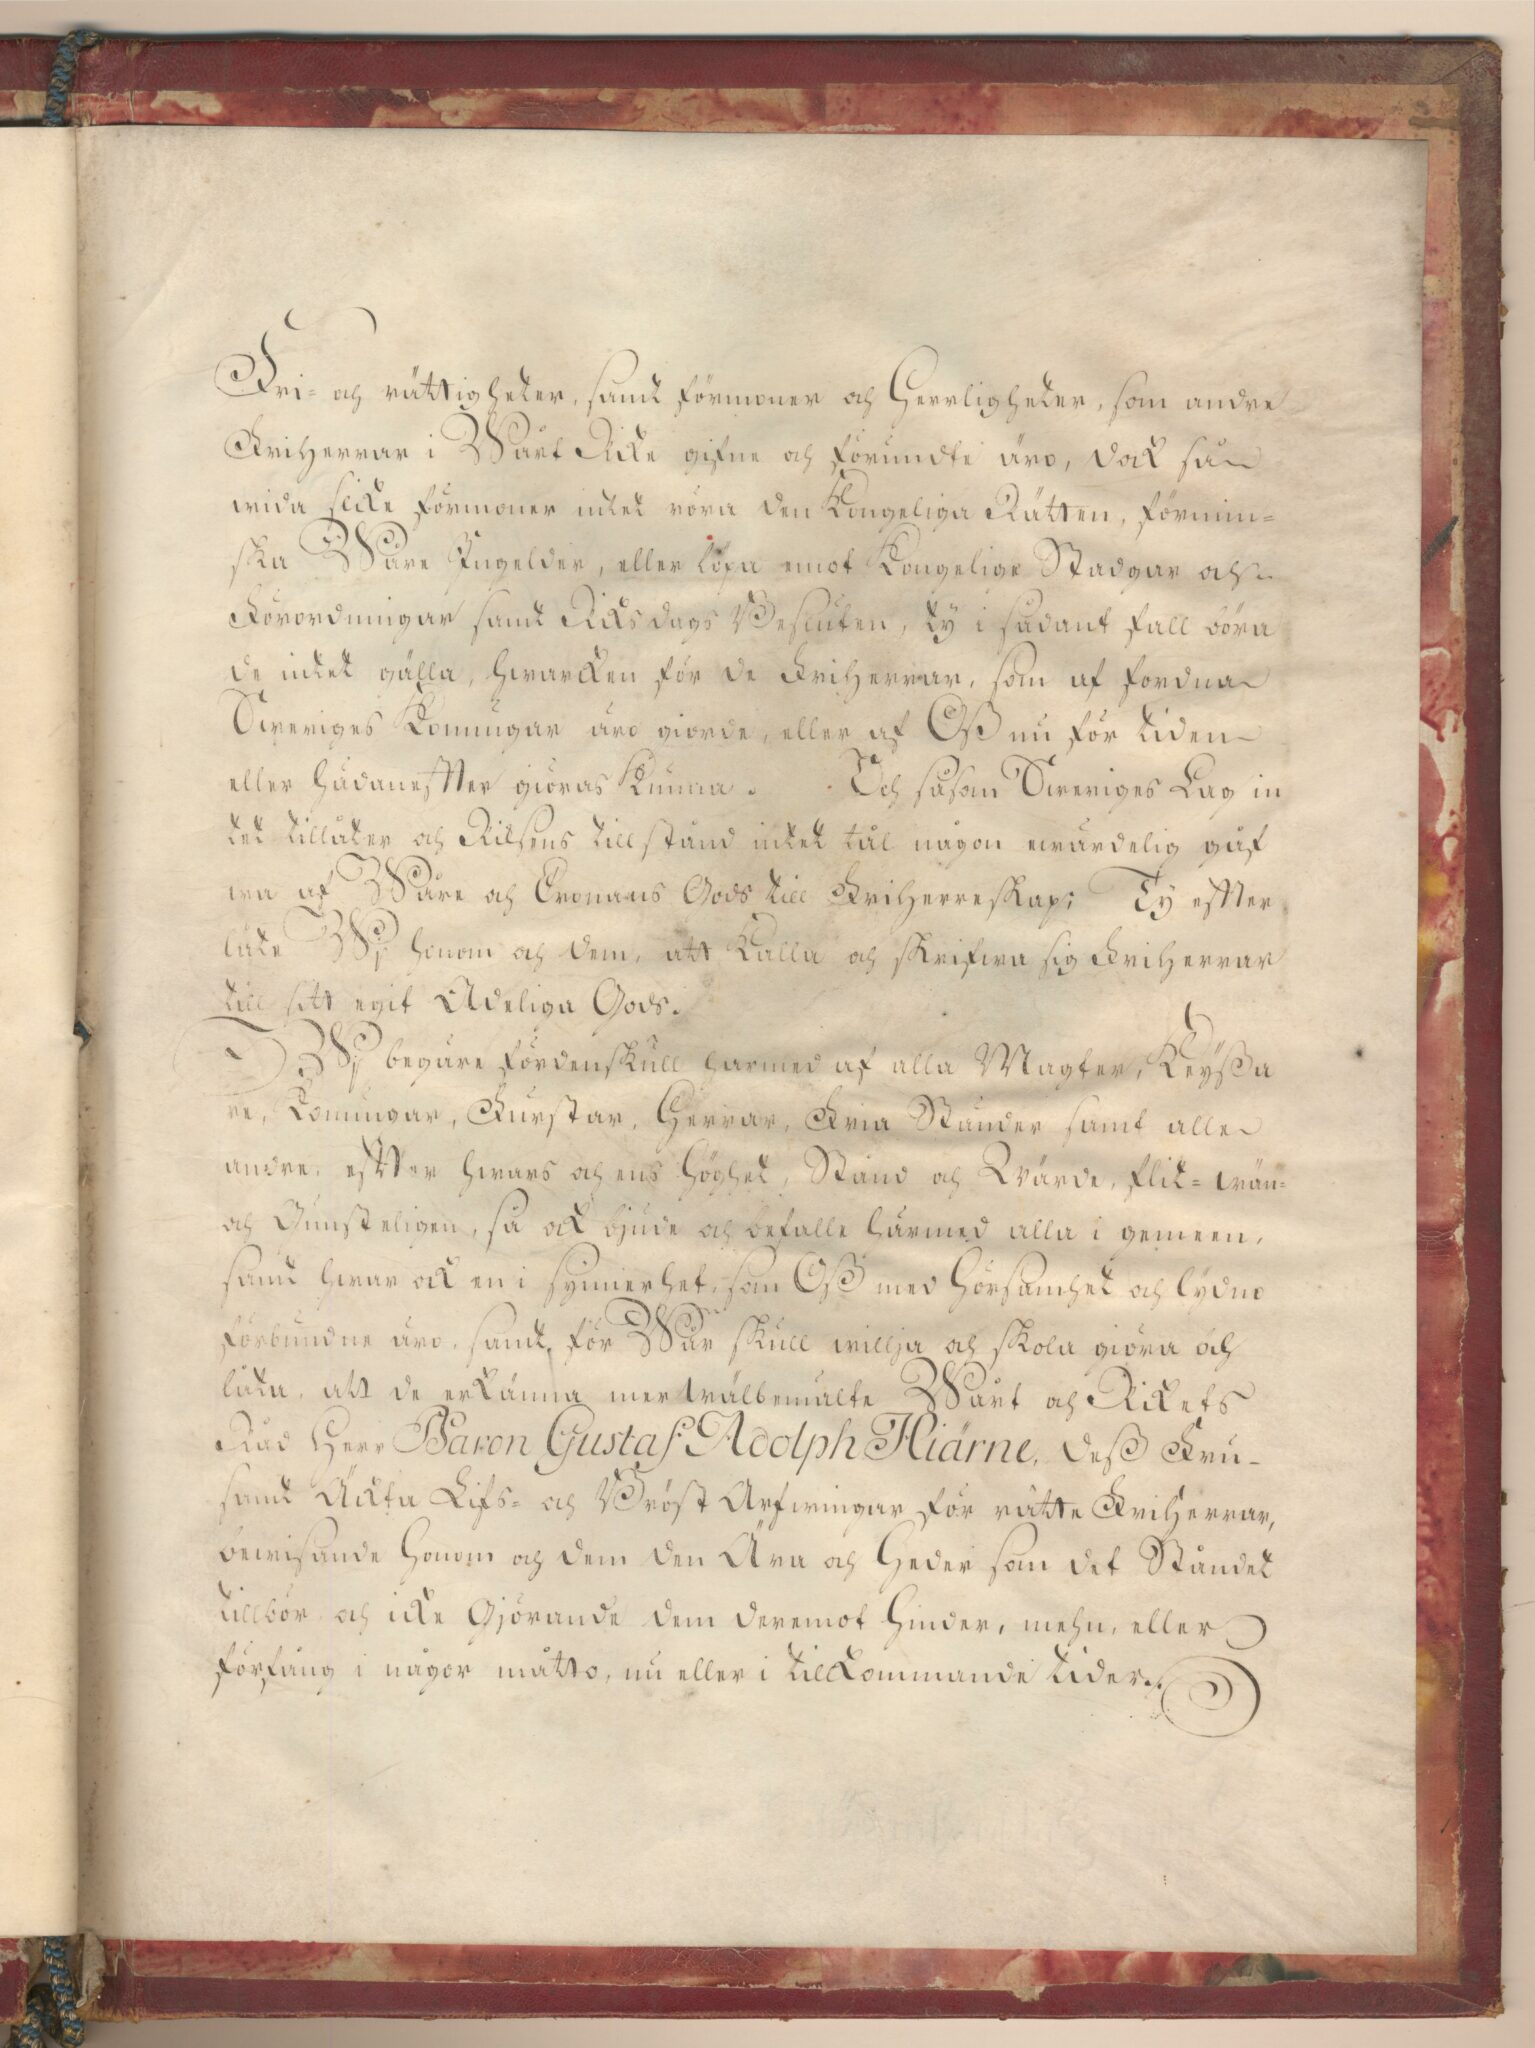 Fri- och rättigheter, samt förmoner och Herrligheter, som andre
FriHerrar i Wårt Rike gifne och förundte äro, dock så
wida slike förmoner intet röra den Kongeliga Rätten, förmin-
ska Wåre Ingelder, eller löpa emot Kongelige Stadgar och
Förordningar samt Riksdags Besluten, ty i sådant fall böra
de intet gälla, hwarcken för de FriHerrar, som af fordna
Sweriges Konungar äro giorde, eller af Oß nu för tiden
eller hädanefter giöras kunna. Och såsom Sweriges Lag in
tet tillåter och Riksens tillstånd intet tål någon ewärdelig gåf
wa af Wåre och Cronans Gods till FriHerreskap; Ty efter
låte Wj honom och dem, att kalla och skrifwa sig FriHerrar
till sitt egit Adeliga Gods.
Wj begäre fördenskull härmed af alla Magter, Keyßa
re, Konungar, Furstar, Herrar, Fria Ständer samt alle
andre, efter hwars och ens Höghet, Stånd och Wärde, flit- wän-
och Gunsteligen, så ock bjude och befalle härmed alla i gemeen,
samt hwar ock en i synnerhet, som Oß med Hörsamhet och lydno
förbundne äro, samt för Wår skull willja och skola giöra och
låta, att de erkänna merwälbemälte Wårt och Rikets
Råd Herr Baron Gustaf Adolph Hiärne, deß Fru
samt Äckta Lifs- och Bröst Arfwingar för rätte FriHerrar,
bewisande Honom och dem den Ära och Heder som det Ståndet
tillbör och icke Gjörande dem deremot Hinder, mehn, eller
förfång i någor måtto, nu eller i tillkommande tider.